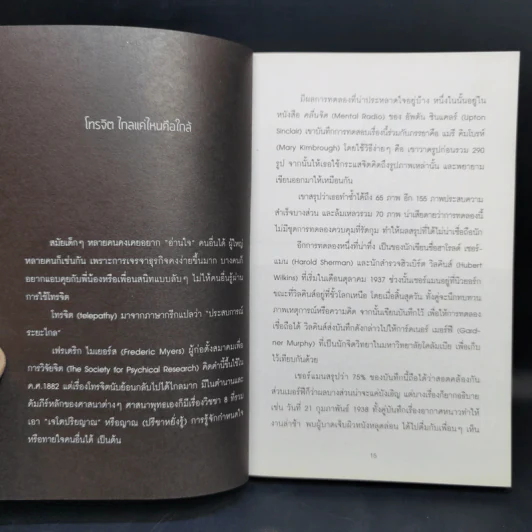 โทรจิต ไกลแค่ไหนคือใกล้
สมัยเด็กๆ หลายคนคงเคยอยาก "อ่านใจ" คนอื่นได้ ผู้ใหญ่
หลายคนก็เช่นกัน เพราะการเจรจาธุรกิจคงง่ายขึ้นมาก บางคนก็
อยากแอบคุยกับพี่น้องหรือเพื่อนสนิทแบบลับๆ ไม่ให้คนอื่นรู้ผ่าน
การใช้โทรจิต
โทรจิต (telepathy) มาจากภาษากรีกแปลว่า "ประสบการณ์
ระยะไกล"
เฟรเดริก ไมเยอร์ส (Frederic Myers) ผู้ก่อตั้งสมาคมเพื่อ
การวิจัยจิต (The Society for Psychical Research) คิดคำนี้ขึ้นใช้ใน
ค.ศ.1882 แต่เรื่องโทรจิตนับย้อนกลับไปได้ไกลมาก มีในตำนานและ
คัมภีร์หลักของศาสนาต่างๆ ศาสนาพุทธเองก็มีเรื่องวิชชา 8 ที่รวม
เอา "เจโตปริยญาณ" หรือญาณ (ปรีชาหยั่งรู้) การรู้จักกำหนดใจ
หรือทายใจคนอื่นได้ เป็นต้น
มีผลการทดลองที่น่าประหลาดใจอยู่บ้าง หนึ่งในนั้นอยู่ใน
หนังสือ คลื่นจิต (Mental Radio) ของ อัพตัน ซินแคลร์ (Upton
Sinclair) เขาบันทึกการทดลองเรื่องนี้ร่วมกับภรรยาคือ แมรี คิมโบรห์
(Mary Kimbrough) โดยใช้วิธีง่ายๆ คือ เขาวาดรูปก่อนรวม 290
รูป จากนั้นให้เธอใช้กระแสจิตคิดถึงรูปภาพเหล่านั้น และพยายาม
เขียนออกมาให้เหมือนกัน
เขาสรุปว่าเธอทำซ้ำได้ถึง 65 ภาพ อีก 155 ภาพประสบความ
สำเร็จบางส่วน และล้มเหลวรวม 70 ภาพ น่าเสียดายว่าการทดลองนี้
ไม่มีชุดการทดลองควบคุมที่รัดกุม ทำให้ผลสรุปที่ได้ไม่น่าเชื่อถือนัก
อีกการทดลองหนึ่งที่น่าทึ่ง เป็นของนักเขียนชื่อฮาโรลด์ เชอร์-
แมน (Harold Sherman) และนักสำรวจฮิวเบิร์ต วิลคินส์ (Hubert
Wilkins) ที่เริ่มในเดือนตุลาคม 1937 ช่วงนั้นเชอร์แมนอยู่ที่นิวยอร์ก
ขณะที่วิลคินส์อยู่ที่ขั้วโลกเหนือ โดยเมื่อสิ้นสุดวัน ทั้งคู่จะนึกทบทวน
ภาพเหตุการณ์หรือความคิด จากนั้นเขียนบันทึกไว้ เพื่อให้การทดลอง
เชื่อถือได้ วิลคินส์ส่งบันทึกดังกล่าวไปให้การ์ดเนอร์ เมอร์ฟี (Gard-
ner Murphy) ที่เป็นนักจิตวิทยาในมหาวิทยาลัยโคลัมเบีย เพื่อเก็บ
ไว้เทียบกันด้วย
เชอร์แมนสรุปว่า 75% ของบันทึกนี้ถือได้ว่าสอดคล้องกัน
ส่วนเมอร์ฟีก็ว่าผลบางส่วนน่าจะแค่บังเอิญ แต่บางเรื่องก็ยากอธิบาย
เช่น วันที่ 21 กุมภาพันธ์ 1938 ทั้งคู่บันทึกเรื่องอากาศหนาวทำให้
งานล่าช้า พบผู้บาดเจ็บผิวหนังหลุดล่อน ได้ไปดื่มกับเพื่อนๆ เห็น
15